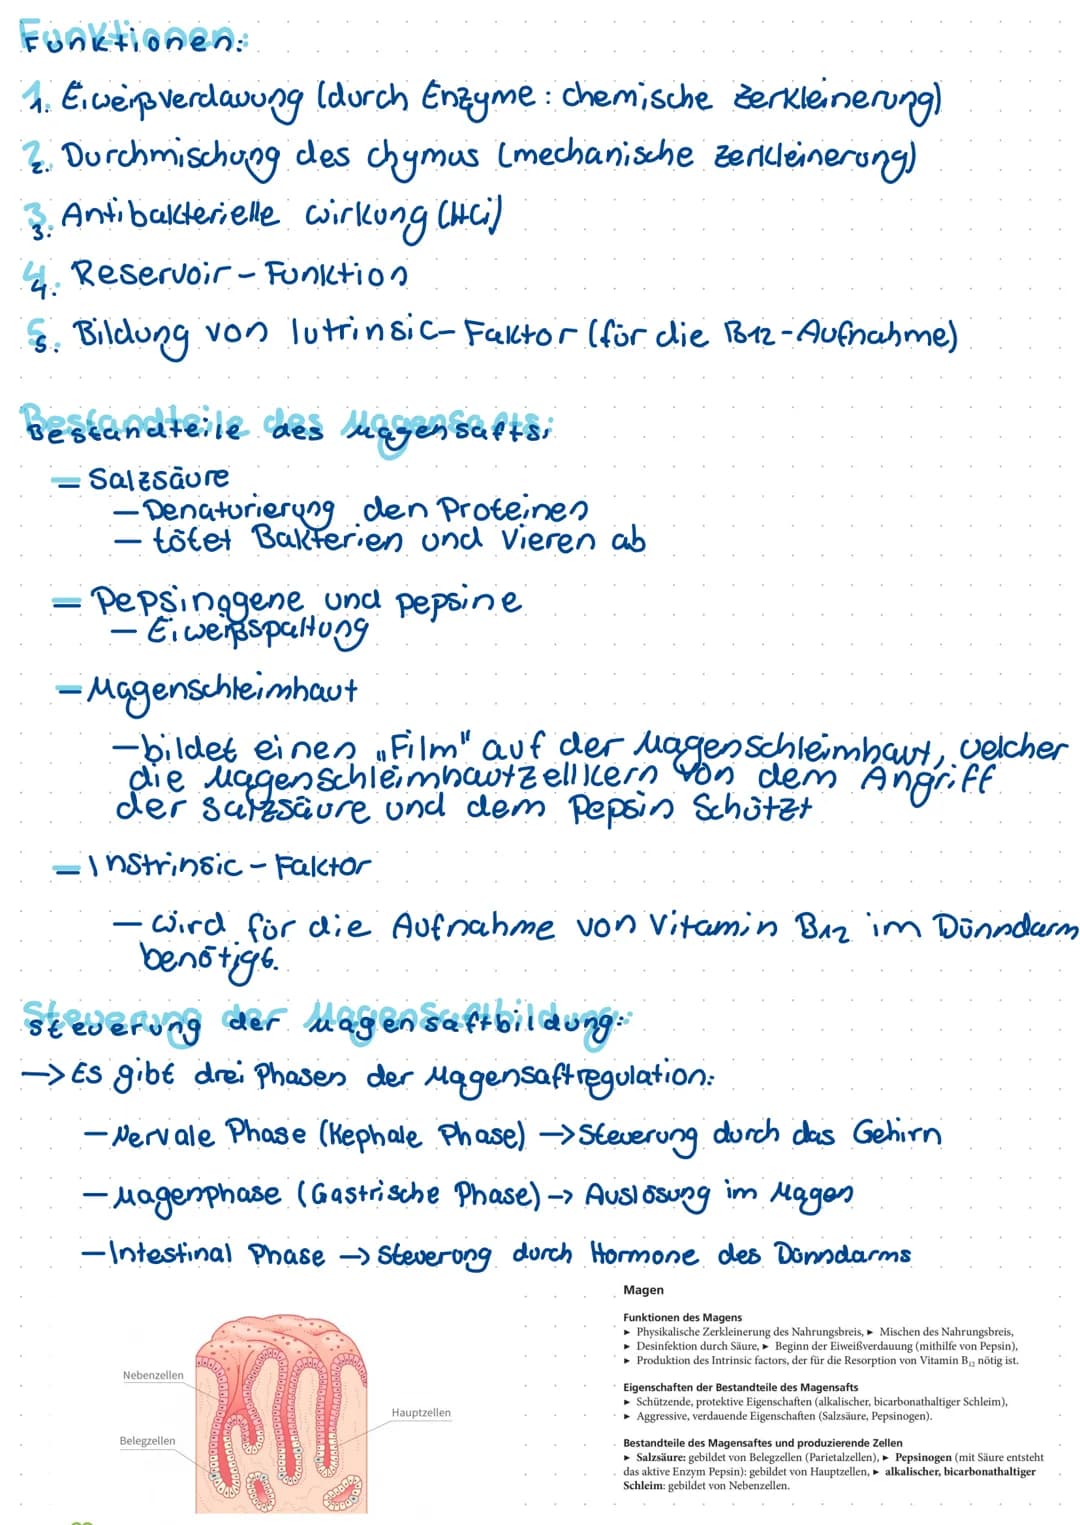 Funktionen:
1. Eiweißverdauung (durch Enzyme: chemische Zerkleinerung)
2. Durchmischung des chymus (mechanische Zerkleinerung)
3. Antibakterielle wirkung (HCl)
4. Reservoir - Funktion
5. Bildung von Iutrinsic- Faktor (für die B12 - Aufnahme)
Bestandteile des Magensafts:
- Salzsäure
- Denaturierung den Proteinen
- tötet Bakterien und Vieren ab
- Pepsinogene und pepsine
- Eiweißspaltung
- Magenschleimhaut
- bildet einen „Film" auf der Magenschleimhaut, welcher
die Magenschleimhautzellkern von dem Angriff
der salzsäure und dem Pepsin Schützt
- Instrinsic - Faktor
- wird für die Aufnahme von Vitamin B12 im Dünndarm
benötigt.
Steuerung der Magensaftbildung:
→ Es gibt drei Phasen der Magensaftregulation:
- Nervale Phase (Kephale Phase) → Steuerung durch das Gehirn
- Magenphase (Gastrische Phase) → Auslösung im Magen
- Intestinal Phase → Steuerung durch Hormone des Dünndarms
Magen
Funktionen des Magens
► Physikalische Zerkleinerung des Nahrungsbreis, ► Mischen des Nahrungsbreis,
► Desinfektion durch Säure, ► Beginn der Eiweißverdauung (mithilfe von Pepsin),
► Produktion des Intrinsic factors, der für die Resorption von Vitamin B12 nötig ist.
Eigenschaften der Bestandteile des Magensafts
► Schützende, protektive Eigenschaften (alkalischer, bicarbonathaltiger Schleim),
► Aggressive, verdauende Eigenschaften (Salzsäure, Pepsinogen).
Bestandteile des Magensaftes und produzierende Zellen
► Salzsäure: gebildet von Belegzellen (Parietalzellen), ► Pepsinogen (mit Säure entsteht
das aktive Enzym Pepsin): gebildet von Hauptzellen, ► alkalischer, bicarbonathaltiger
Schleim: gebildet von Nebenzellen.
Nebenzellen
Hauptzellen
Belegzellen